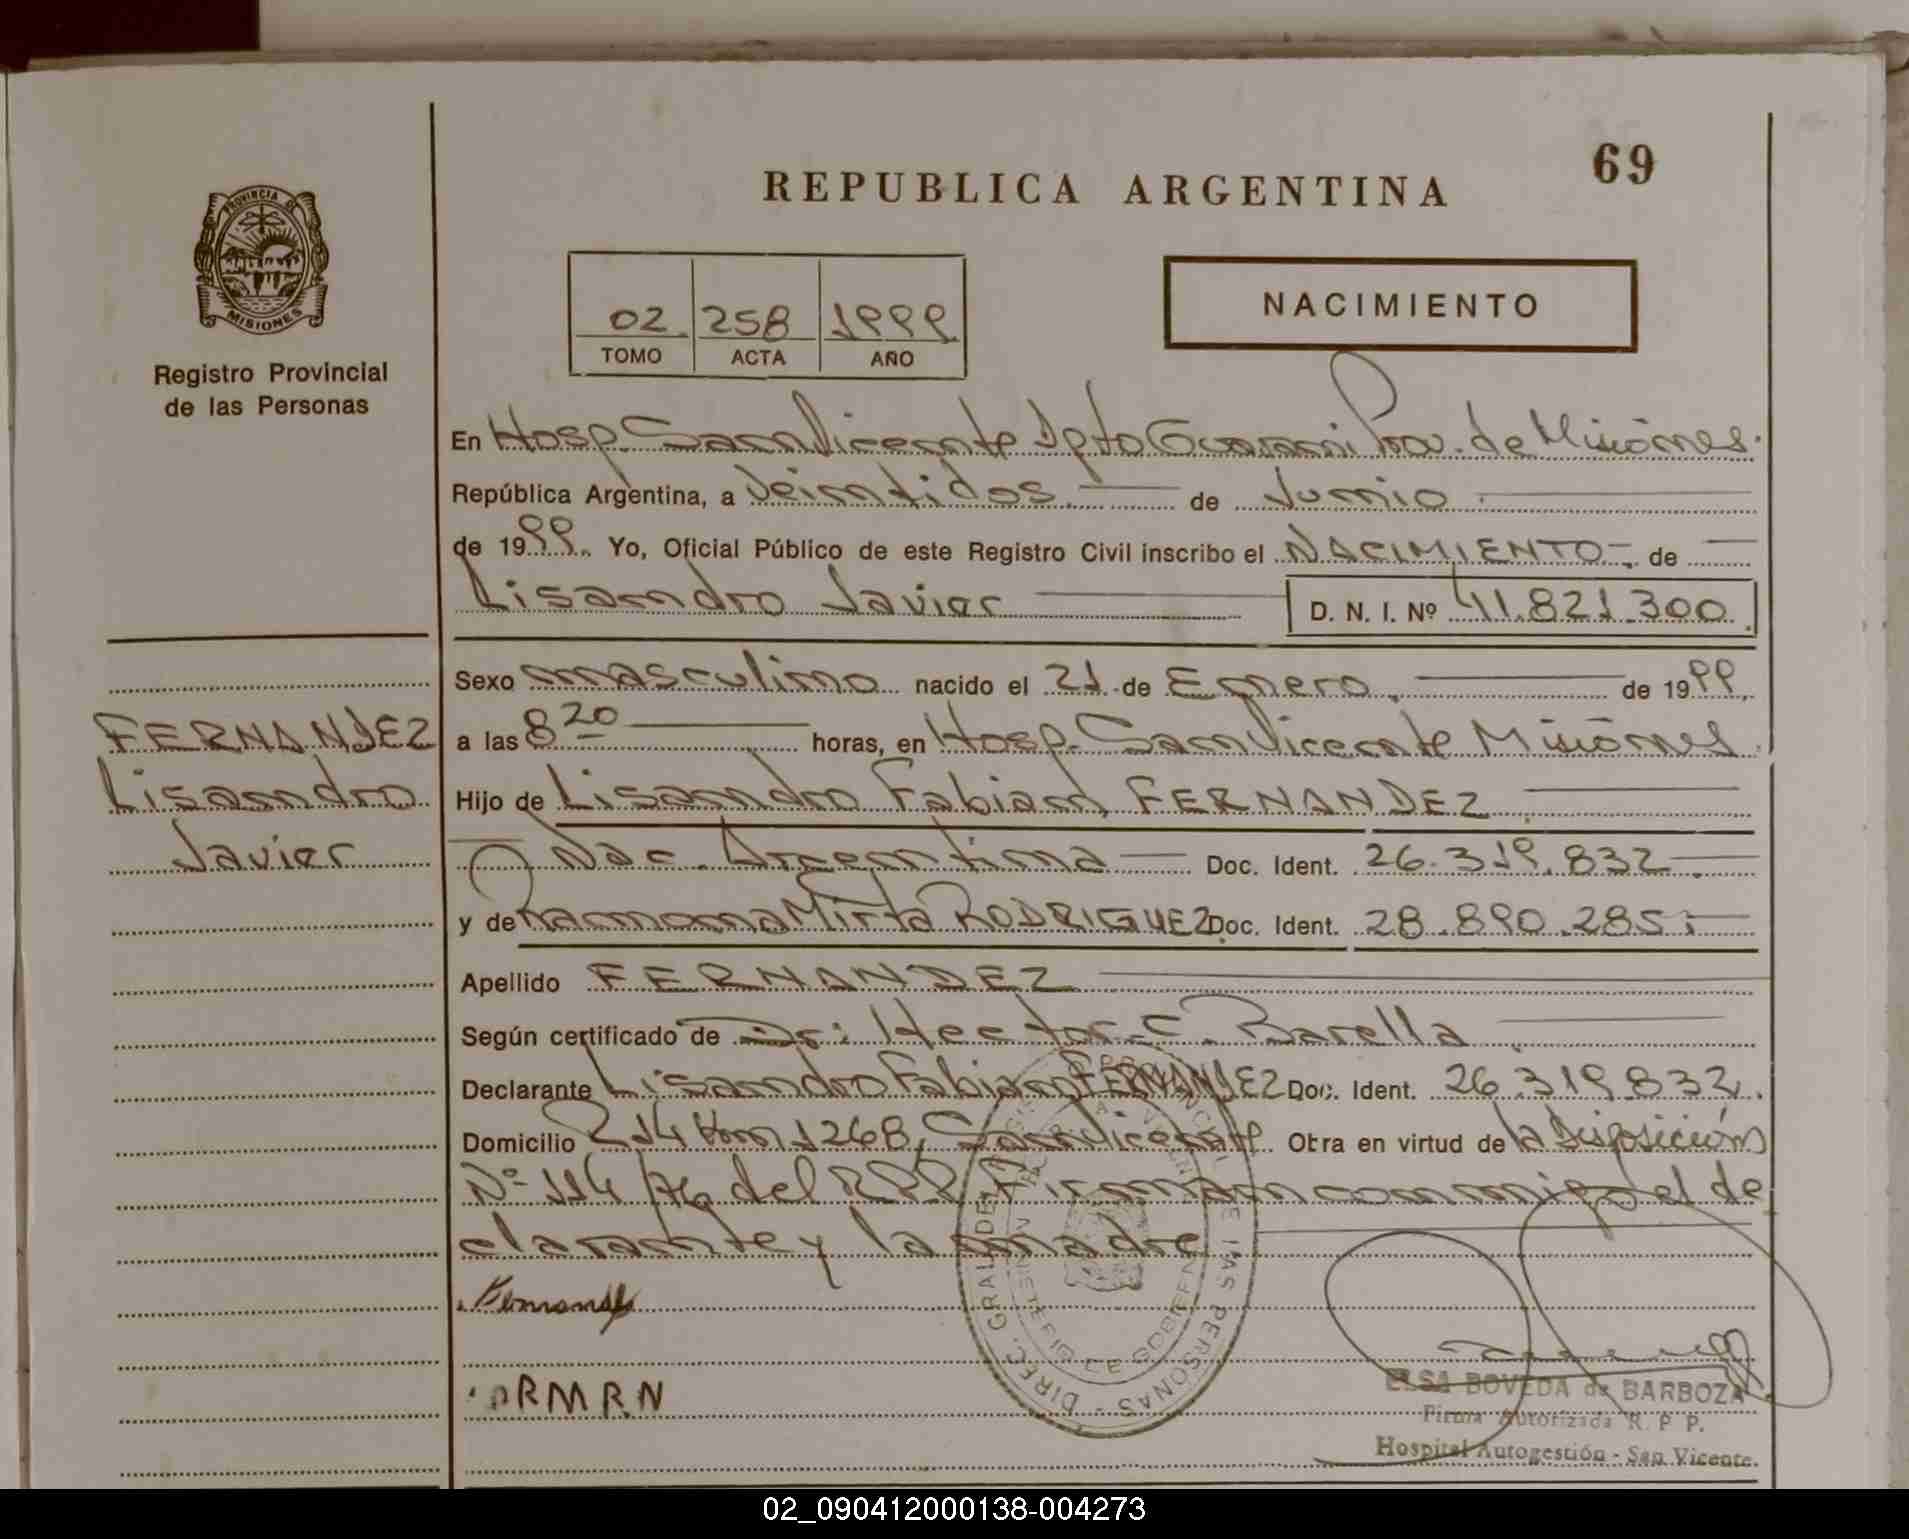 69
REPUBLICA ARGENTINA
PROVINCIA DE
MISIONES
Registro Provincial
de las Personas
02 258 1999
TOMO ACTA AÑO
NACIMIENTO
En Hosp. San Vicente Dpto Guarani Prov. de Misiones.
República Argentina, a Veintidos de Junio
de 1999. Yo, Oficial Público de este Registro Civil inscribo el NACIMIENTO de
Lisandro Javier D. N. I. Nº 41.821.300
Sexo masculino nacido el 21 de Enero de 1999
a las 8 20 horas, en Hosp. San Vicente Misiones
FERNANDEZ
Lisandro
Javier
Hijo de Lisandro Fabian FERNANDEZ
Nac. Argentina Doc. Ident. 26.319.832
y de Ramona Mirta RODRIGUEZ Doc. Ident. 28.890.285
Apellido FERNANDEZ
Según certificado de Dr: Hector C. Barella
Declarante Lisandro Fabian FERNANDEZ Doc. Ident. 26.319.832
Domicilio R 14 Km 1268, San Vicente Otra en virtud de la Disposición
Nº 114/76 del RPP. Firman conmigo el de
clarante y la madre
RMRN
ELSA BOVEDA de BARBOZA
Firma Autorizada R. P. P.
Hospital Autogestión - San Vicente.
02_090412000138-004273